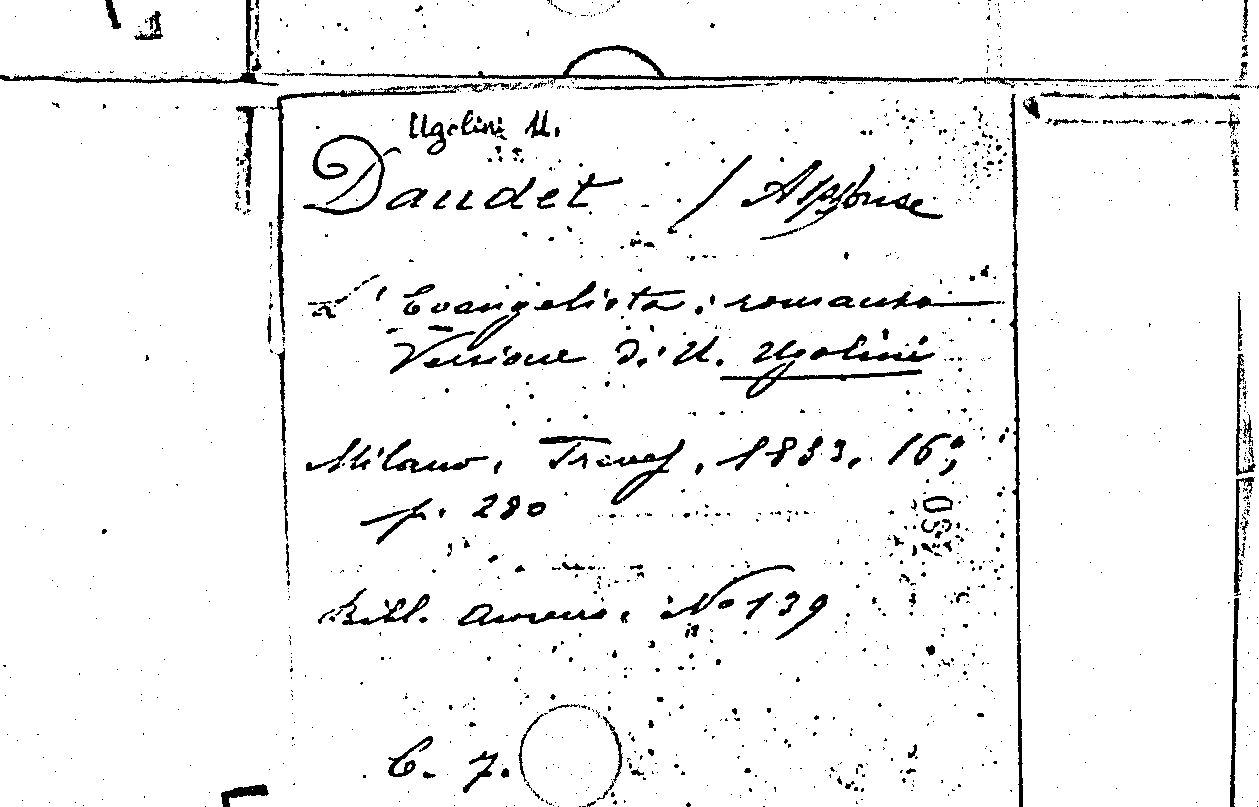 Ugolini U.
Daudet / Alphonse
L' Evangelista: romanzo
Versione di U. Ugolini
Milano, Treves, 1883, 16°;
p. 280
Bibl. amena, No 139
C. 7.